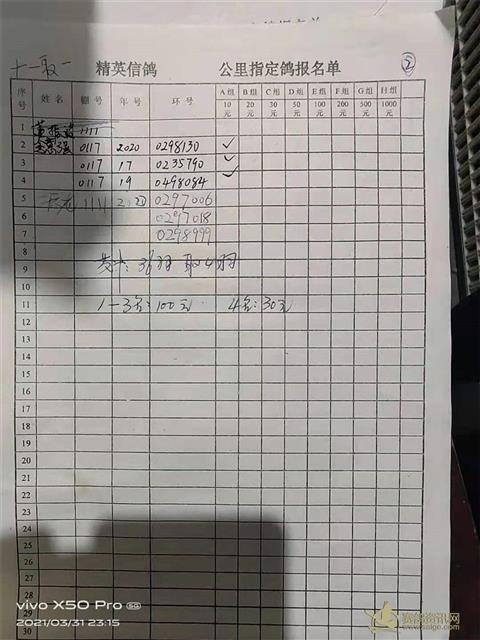 十一取一 精英信鸽 公里指定鸽报名单 2
序号 姓名 棚号 年号 环号 A组 10元 B组 20元 C组 30元 D组 50元 E组 100元 F组 200元 G组 500元 H组 1000元
1 1111
2 0117 2020 0298130 ✓
3 0117 17 0235790 ✓
4 0117 19 0498084 ✓
5 1111 0297006
6 0297018
7 0298999
8
9 共计:
10
11 1-3名:100元 4名:30元
12
13
14
15
16
17
18
19
20
21
22
23
24
25
26
27
28
29
30
vivo X50 Pro 5G
2021/03/31 23:15
赛鸽资讯网
www.saige.com